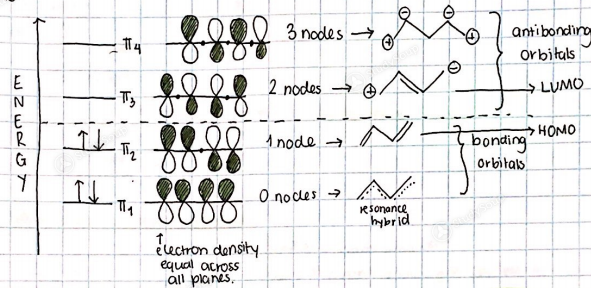 ENERGY
π4
3 nodes →
⊖ ⊖
⊕ ⊕
antibonding
orbitals
π3
2 nodes →
⊕ ⊖
→ LUMO
π2
1 node →
→ HOMO
bonding
orbitals
π1
0 nodes →
resonance
hybrid
↑
electron density
equal across
all planes.